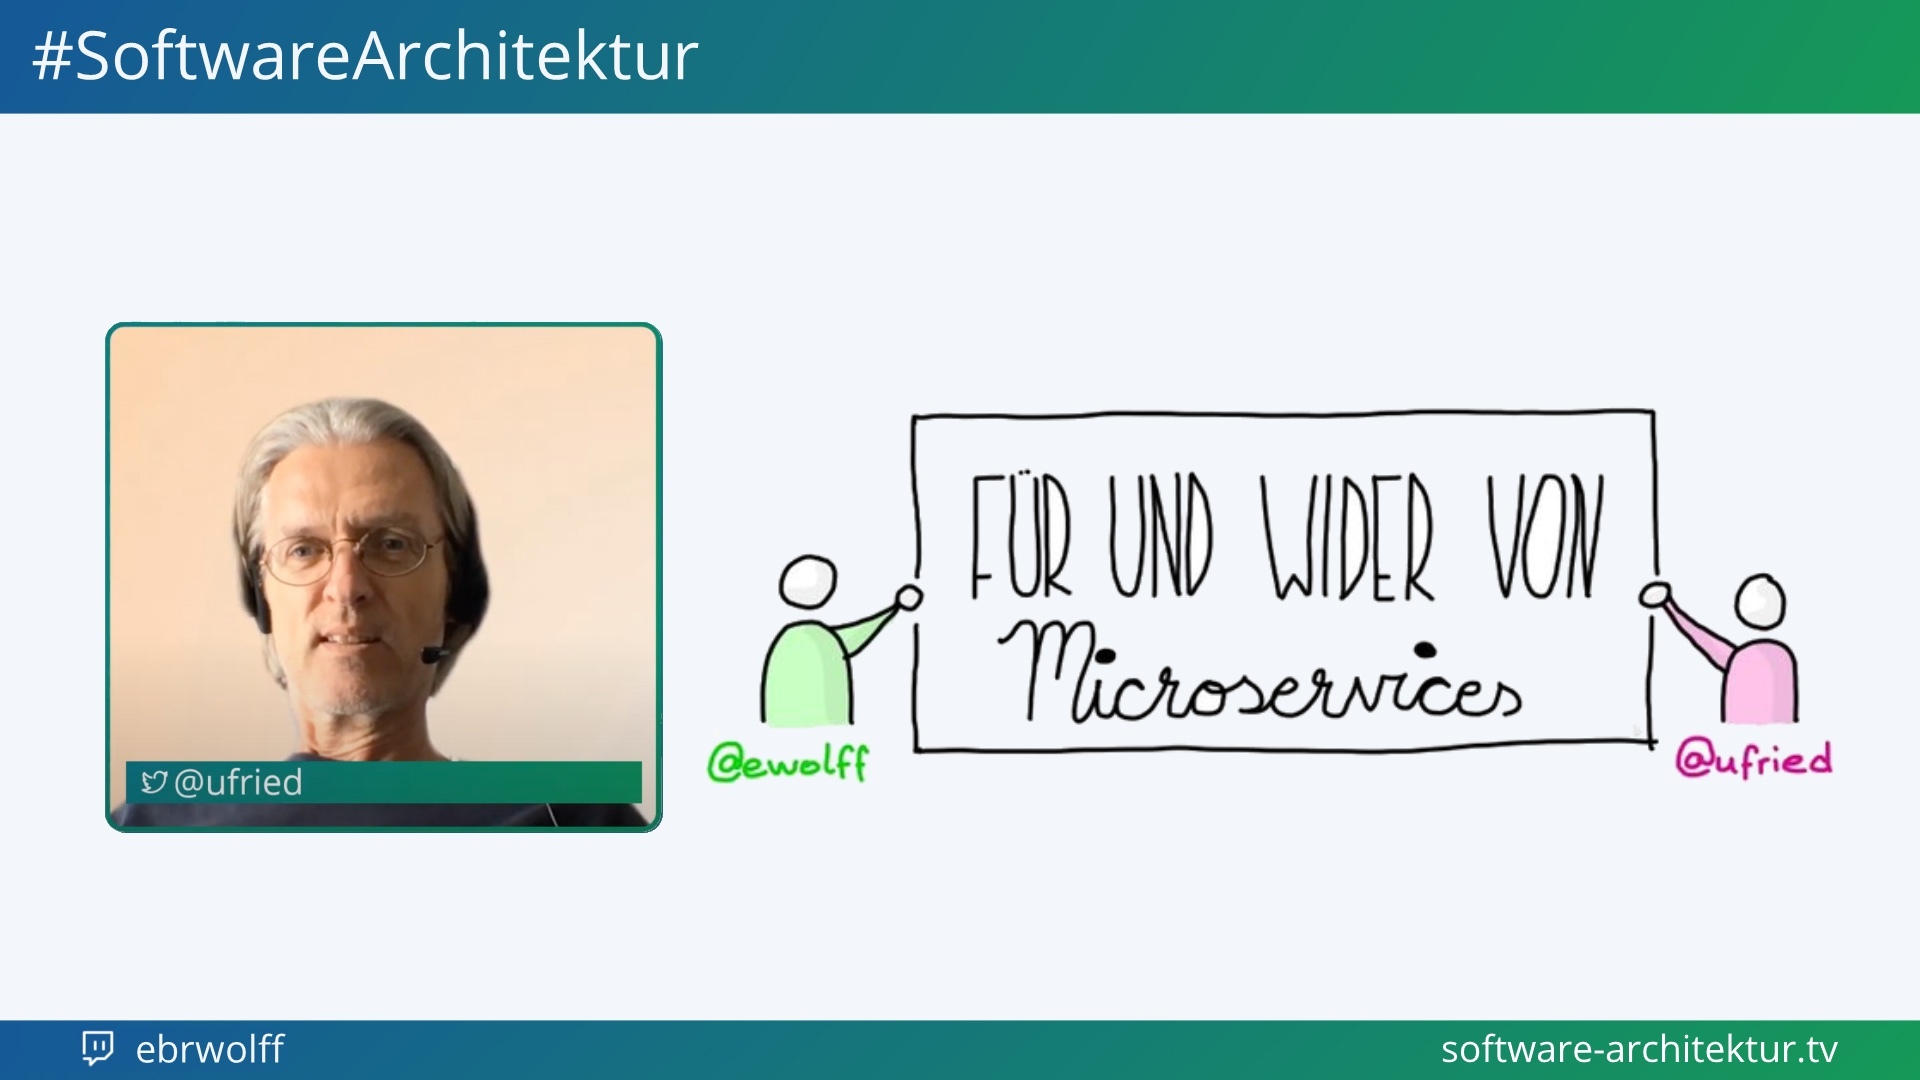 #SoftwareArchitektur
@ufried
FÜR UND WIDER VON
Microservices
@ewolff
@ufried
ebrwolff
software-architektur.tv